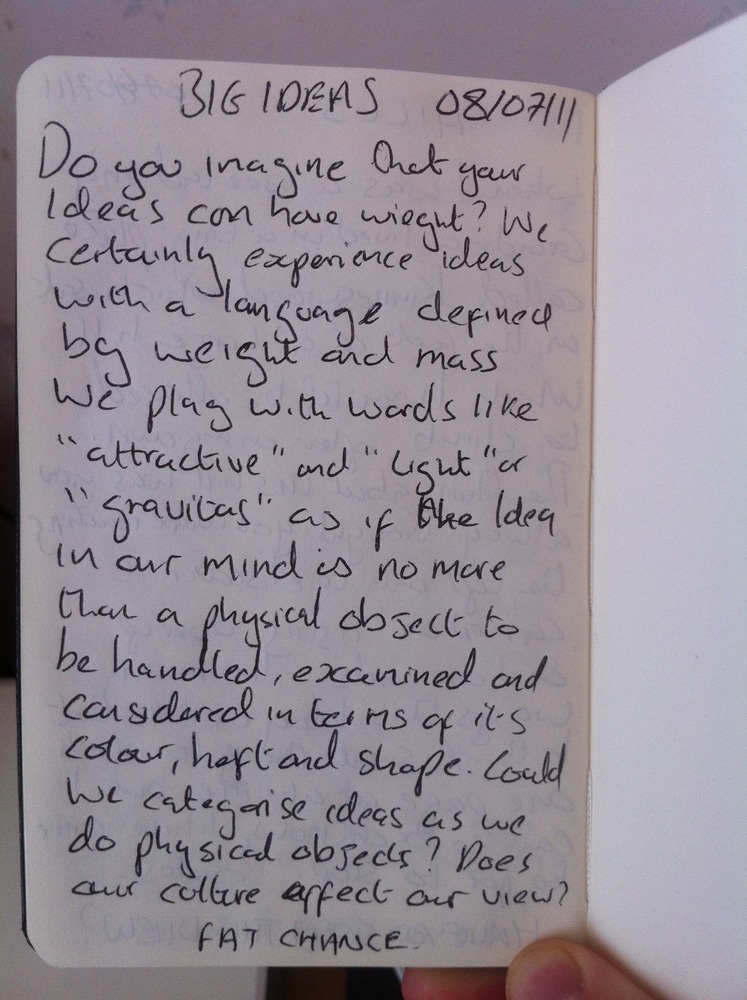 BIG IDEAS 08/07/11
Do you imagine that your
Ideas can have wieght? We
certainly experience ideas
with a language defined
by weight and mass
We play with words like
"attractive" and "Light" or
"gravitas" as if the Idea
in our mind is no more
than a physical object to
be handled, examined and
considered in terms of it's
colour, heft and shape. Could
we categorise ideas as we
do physical objects? Does
our culture affect our view?
FAT CHANCE.